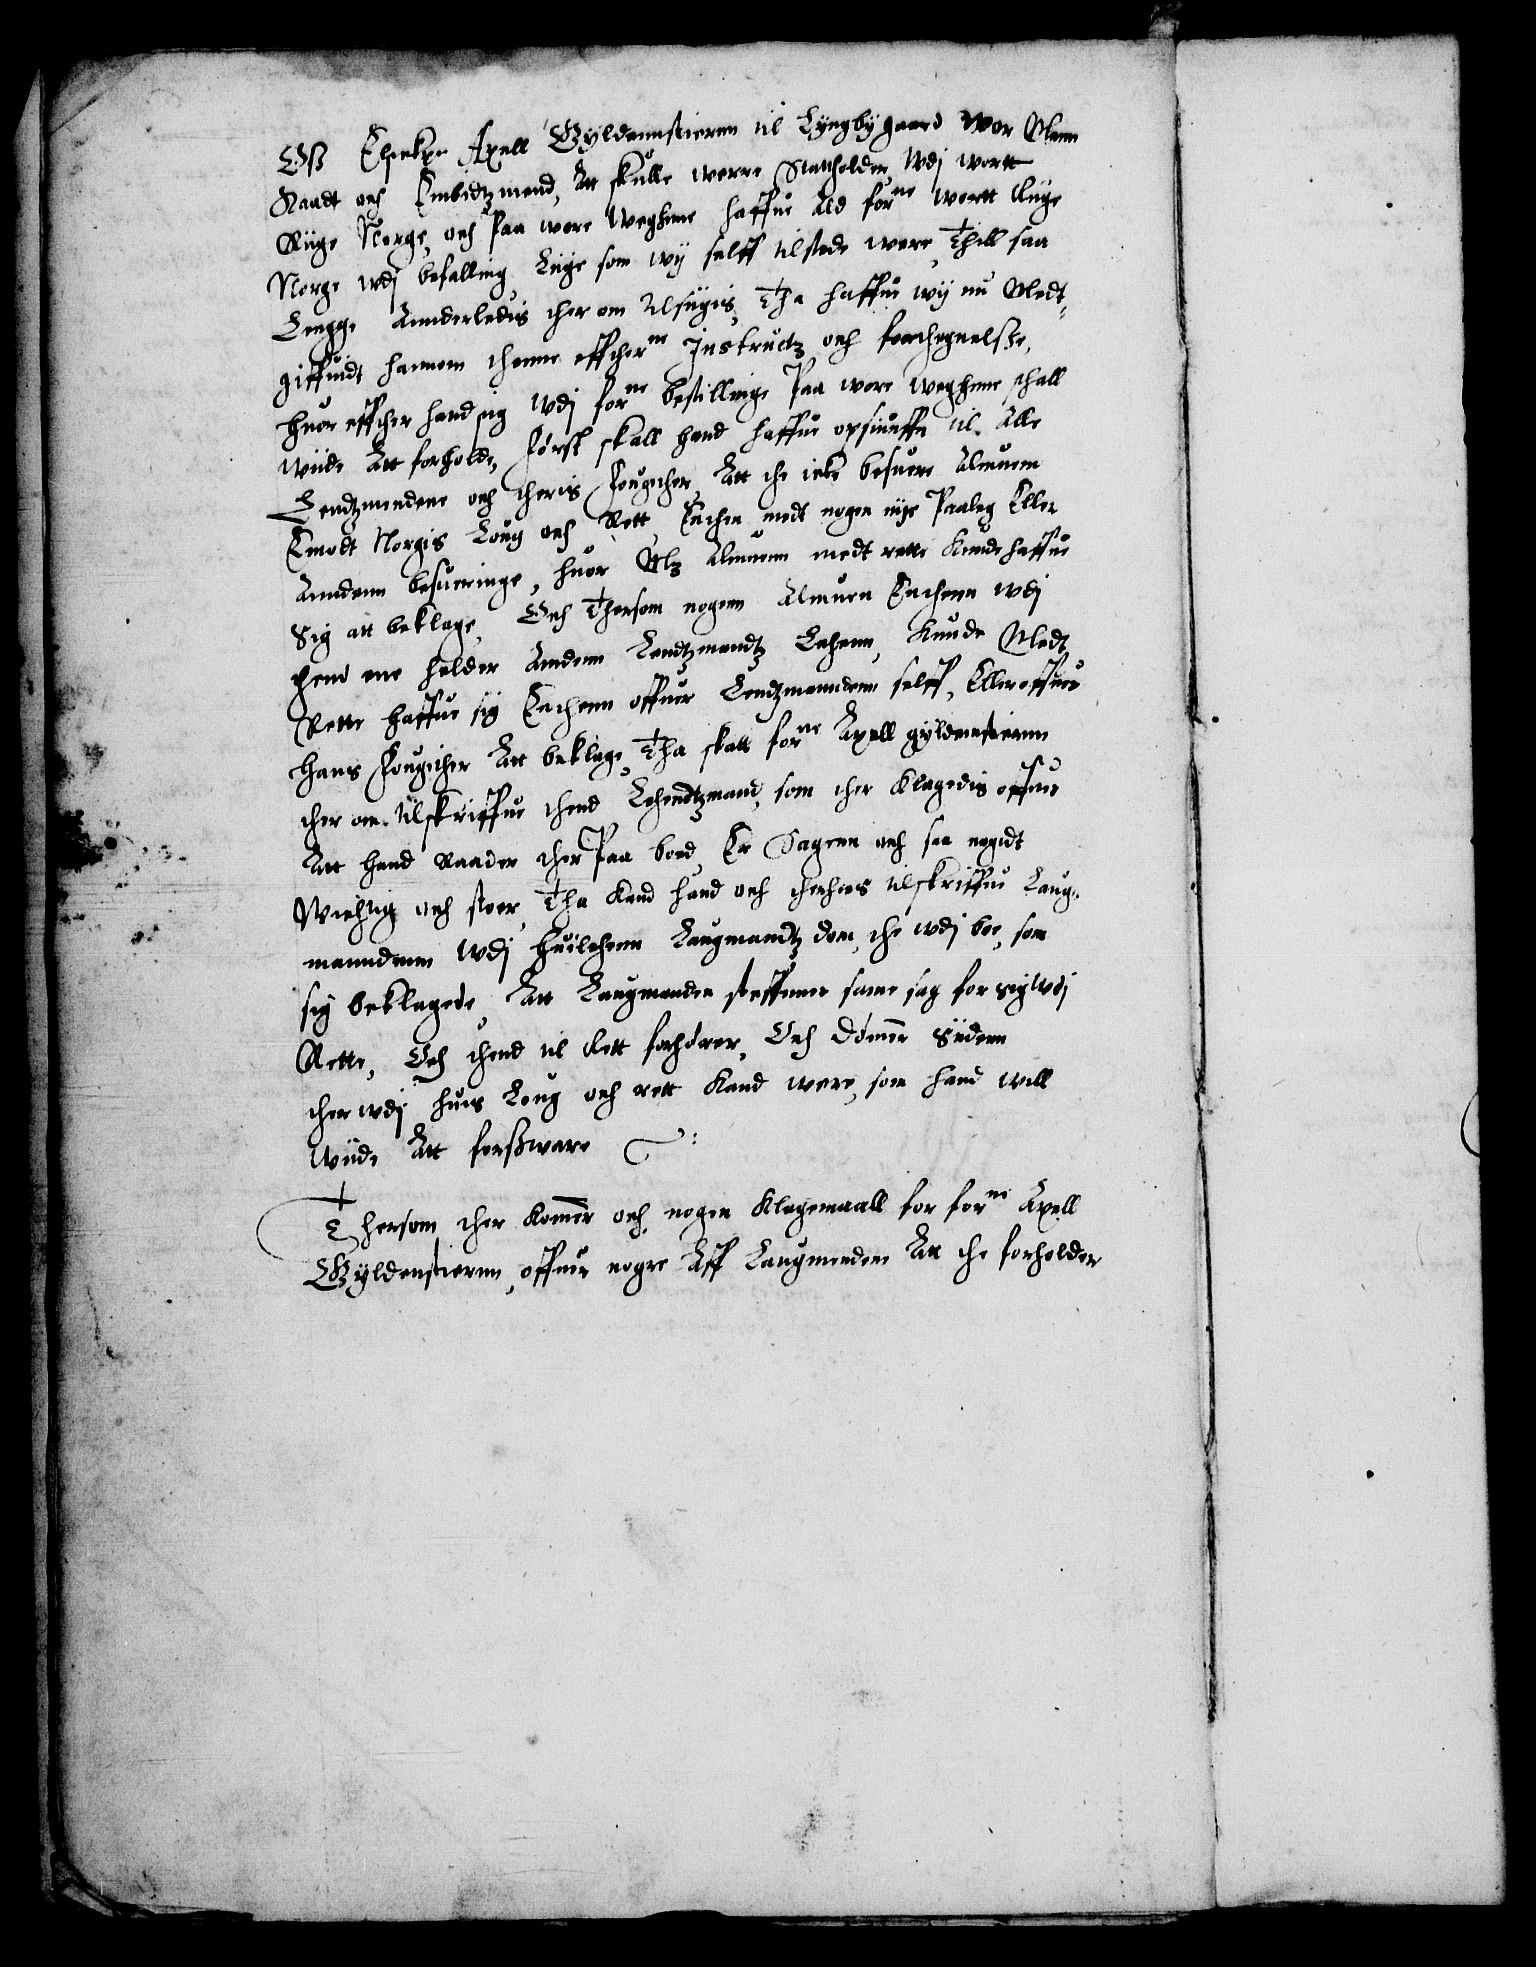 Oß Elskelige Axell Gyldennstiernn til Lyngbygaard Wor Mann
Raadt och Embidtzmend, Att skulle werre Stattholder Wdj wortt
Riige Norge, och Paa wore Weghnne haffue Ald forne wortt Riige
Norge wdj befalling, Liige som wij selff tilstede were, Thill saa
Lengge Annderledis ther om Tilsiigis, Tha haffue wij nu Medt-
giffuidt hannom thenne effther ne Instructz och forthegnelsße,
huor effther hand sig wdj forne bestillinge Paa wore weghnne schall
wiide Att forholde, Først skall hand haffue opsiuffn til Alle
Lendtzmendene och theris Fougither, Att the icke besuere Almuenn
Emodt Norgis Loug och Rett, Enthen medt nogen nye Paaleg Eller
Anndenn besueringe, huor Vtz Almuenn medt rette Kunde haffue
Sig att beklage, Och Thersom nogenn Almuen Enthenn wdj
thend ene heller Andenn Lendtzmendtz Lehenn, Kunde Medt
Rette haffue sig Enthenn offuer Lendtzmanndenn selff, Eller offuer
Hans Fougither Att beklage, Tha skall forne Axell gyldenstiernn
ther om Tilskriffue thend Lehendtzmand, som ther Klagedis offuer
Att hand Raader ther Paa boed, Er Sagenn och saa nogidt
Wichtig och stoer, Tha Kand hand och thenhers tilskriffue Laug-
manndenn wdj Huilchenn Laugmandtz dom, the wdj boe, som
sig beklagede, Att Laugmanden steffnner same sag for sig wdj
Rette, Och thend til Rett forhører, Och Dømer Siidenn
ther wdj huis Loug och rett Kand were, som hand will
wiide Att forßware
Thersom ther Komer och nogen Klagemaall for forne Axell
Gyldenstiernn, offuer nogre Aff Laugmendene Att the forholder